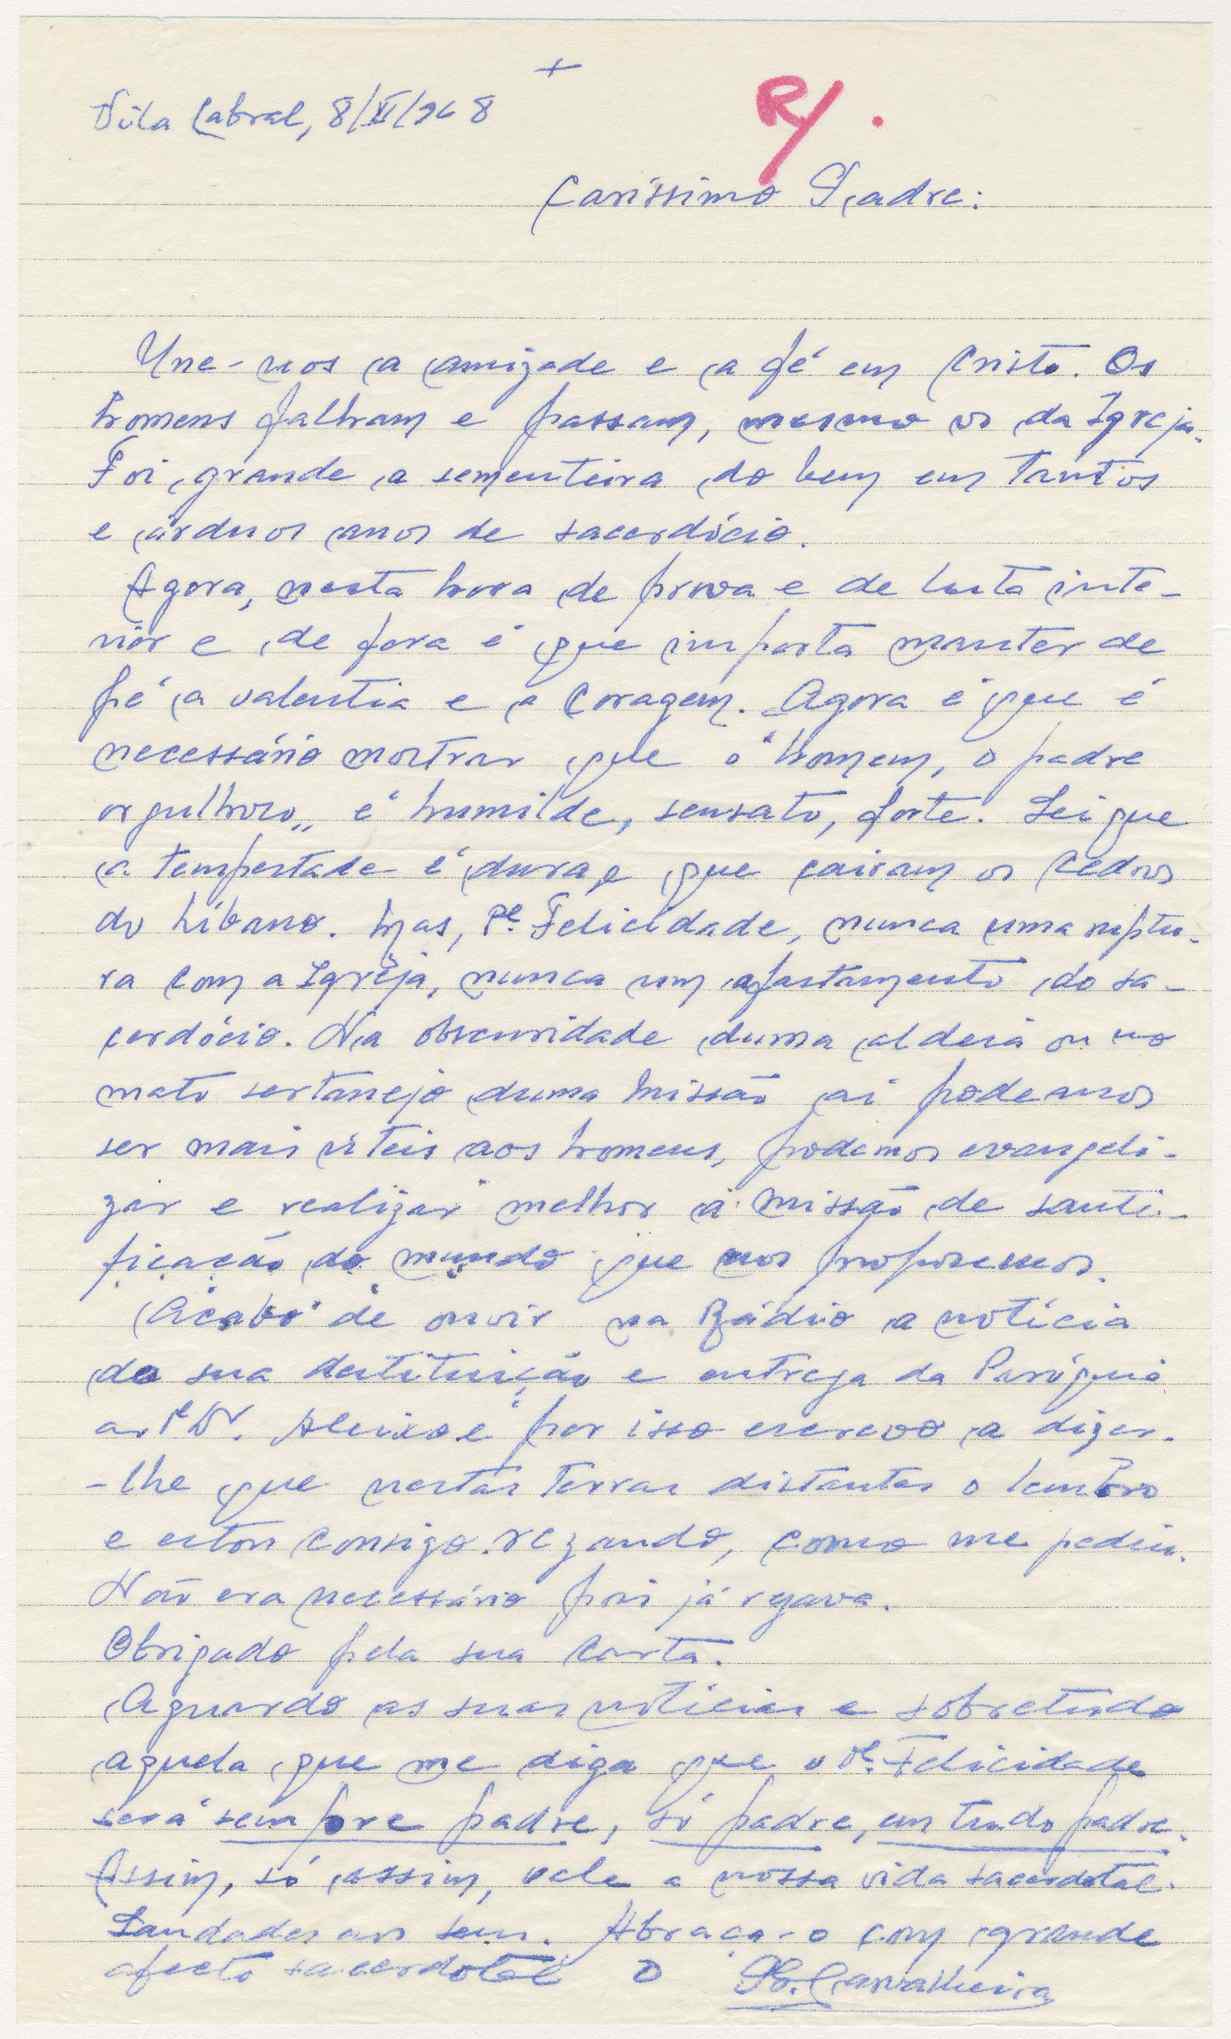 +
Vila Cabral, 8/XI/968
R/.
Caríssimo Padre:
Une-nos a amizade e a fé em Cristo. Os
homens falham e passam, mesmo os da Igreja.
Foi grande a sementeira do bem em tantos
e árduos anos de sacerdócio.
Agora, nesta hora de prova e de luta inte-
rior e de fora é que importa manter de
pé a valentia e a coragem. Agora é que é
necessário mostrar que o "homem, o padre
orgulhoso" é humilde, sensato, forte. Sei que
a tempestade é dura e que caíram os cedros
do Líbano. Mas, Pe. Felicidade, nunca uma ruptu-
ra com a Igreja, nunca um afastamento do sa-
cerdócio. Na obscuridade duma aldeia ou no
mato sertanejo duma Missão aí podemos
ser mais úteis aos homens, podemos evangeli-
zar e realizar melhor a missão de santi-
ficação do mundo que nos propusemos.
Acabo de ouvir na Rádio a notícia
da sua destituição e entrega da Paróquia
ao Pe Dr. Aleixo e por isso escrevo a dizer-
-lhe que nestas terras distantes o lembro
e estou consigo rezando, como me pediu.
Não era necessário pois já rezava.
Obrigado pela sua carta.
Aguardo as suas notícias e sobretudo
aquela que me diga que o Pe. Felicidade
será sempre padre, só padre, em tudo padre.
Assim, só assim, vale a nossa vida sacerdotal.
Saudades aos seus. Abraça-o com grande
afecto sacerdotal o Carvalheira